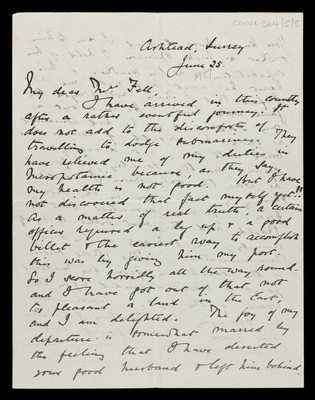 Ashtead, Surrey
June 25.
My dear Mrs Fell,
I have arrived in this country
after a rather eventful journey. It
does not add to the discomforts of
travelling to dodge submarines. They
have relieved me of my duties in
Mesopotamia because, as they say,
my health is not good. But I have
not discovered that fact myself yet!!
As a matter of real truth a certain
officer required a leg up & a good
billet & the easiest way to accomplish
this was by giving him my post.
So I score horribly all the way round.
and I have got out of that not
too pleasant a land in the East,
and I am delighted. The joy of my
departure is somewhat marred by
the feeling that I have deserted
your good husband & left him behind.